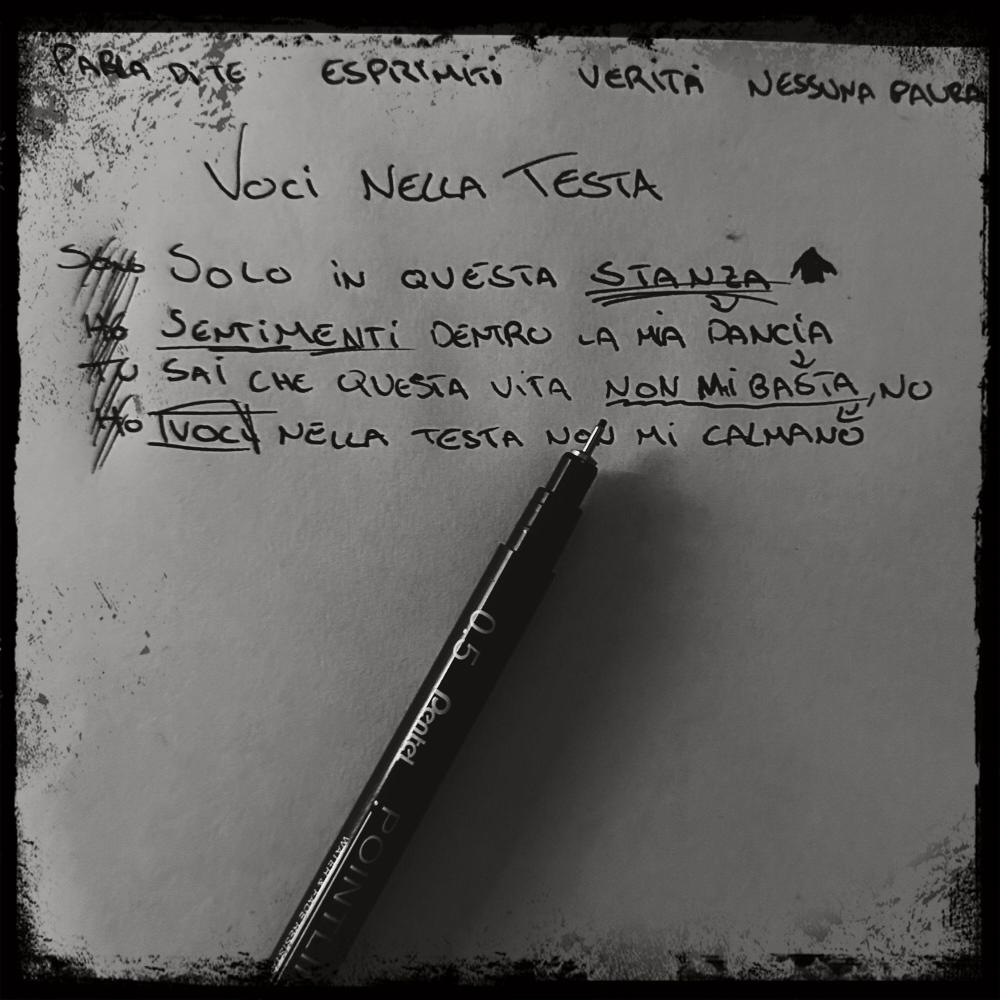 PARLA DI TE ESPRIMITI VERITÀ NESSUNA PAURA
VOCI NELLA TESTA
SONO SOLO IN QUESTA STANZA
HO SENTIMENTI DENTRO LA MIA PANCIA
TU SAI CHE QUESTA VITA NON MI BASTA, NO
HO VOCI NELLA TESTA NON MI CALMANO
0.5 Pentel POINTLIN
WATER & FADE RESIST